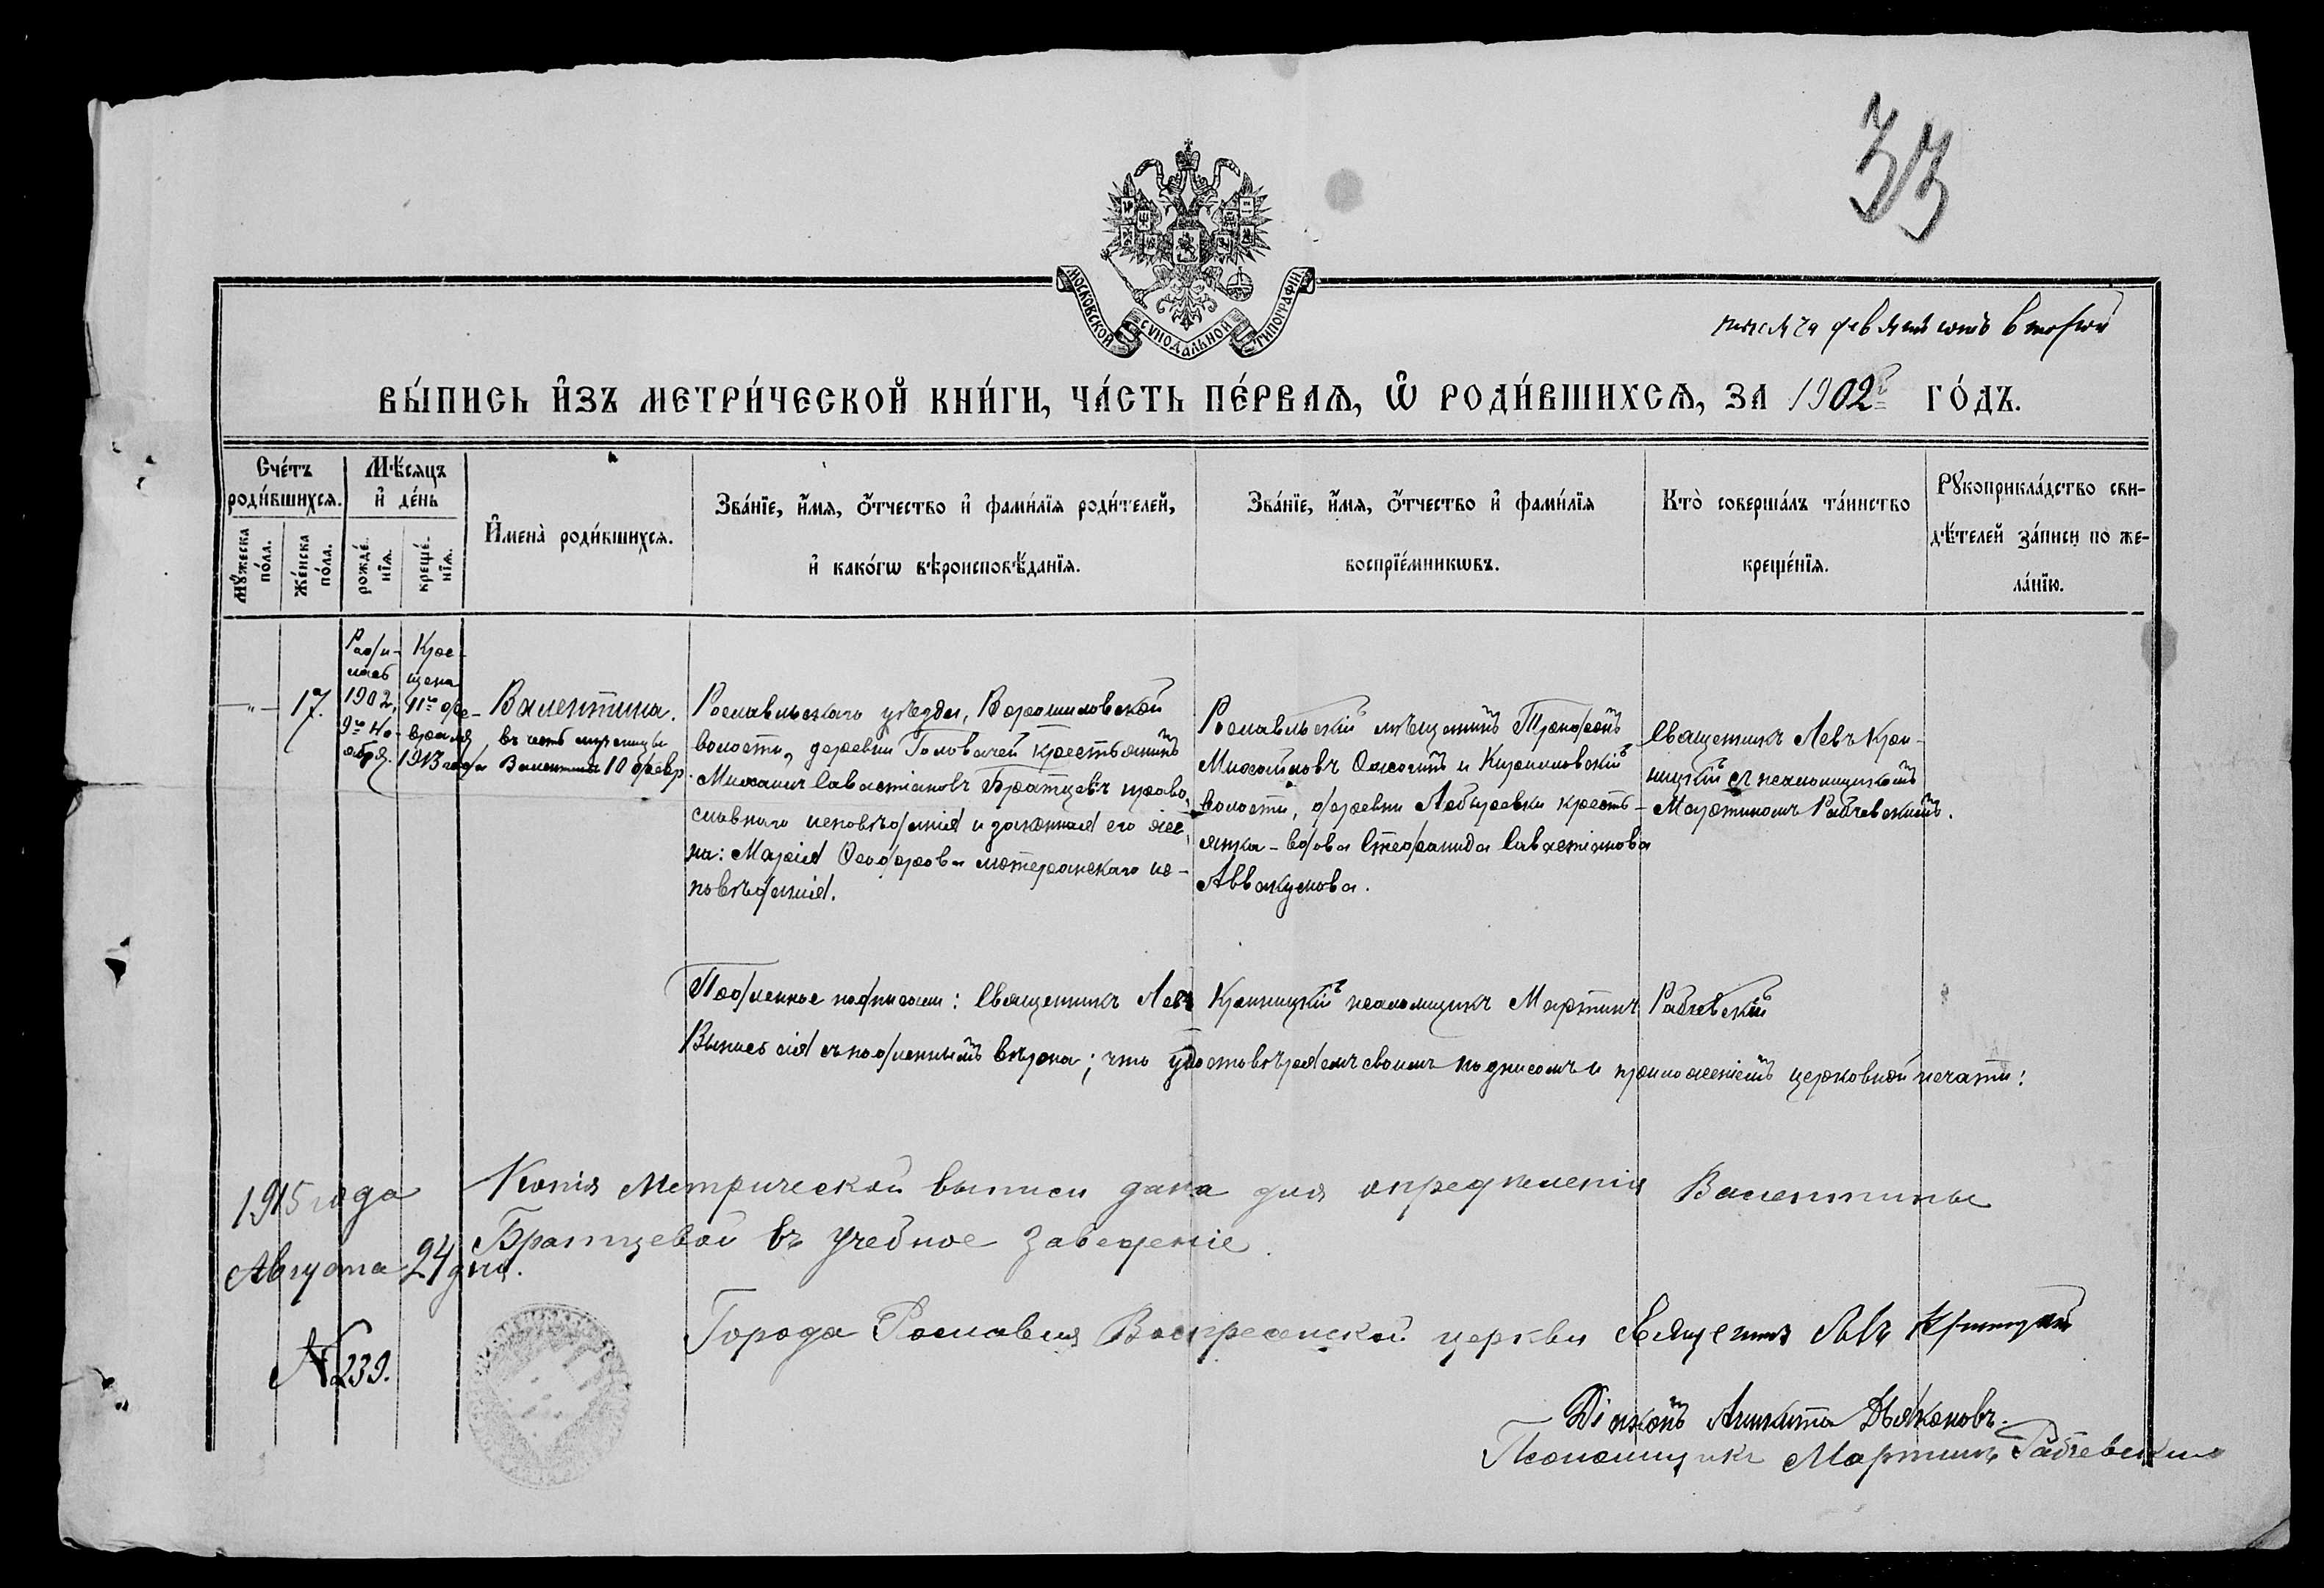 33
МОСКОВСКОЙ СѴНОДАЛЬНОЙ ТИПОГРАФІИ
тысяча девятьсотъ второй
ВЫ́ПИСЬ И҆ЗЪ МЕТРИ́ЧЕСКОЙ КНИ́ГИ, ЧА́СТЬ ПЕ́РВАѦ, Ѽ РОДИ́ВШИХСѦ, ЗА 1902й ГО́ДЪ.
Сче́тъ
роди́вшихсѧ.
Мꙋ́жеска
по́ла.
Же́нска
по́ла.
Мѣ́сѧцъ
и҆ де́нь
рожде́-
нїѧ.
креще́-
нїѧ.
И҆мена̀ роди́вшихсѧ.
Зва́нїе, и҆́мѧ, ѻ҆́тчество и҆ фами́лїѧ роди́телей,
и҆ како́гѡ вѣроисповѣ́данїѧ.
Зва́нїе, и҆́мѧ, ѻ҆́тчество и҆ фами́лїѧ
воспрїе́мникѡвъ.
Кто̀ соверша́лъ та́инство
креще́нїѧ.
Рꙋкоприкла́дство сви-
дѣ́телей за́писи по же-
ла́нїю.
— " —
17.
Роди-
лась
1902,
9го Но-
ября.
Кре-
щена
11го фе-
враля
1913 года
Валентина.
въ честь мученицы
Валентины 10 февр.
Рославльскаго уѣзда, Ворошиловской
волости, деревни Головачей крестьянинъ
Михаилъ Савастіановъ Братцевъ право-
славнаго исповѣданія и законная его же-
на: Марія Ѳеодорова лютеранскаго ис-
повѣданія.
Рославльскій мѣщанинъ
Михайловъ и Кирилловскій
волости, деревни кресть-
янка - вдова Степанида Савастіанова
Аввакумова.
Священникъ Левъ Кри-
ницкій съ псаломщикомъ
Мартиномъ Рабчевскимъ.
Подленное подписали: Священникъ Левъ Криницкій псаломщикъ Мартинъ Рабчевскій
Выпись сія съ подленнымъ вѣрна; что удостовѣряемъ своимъ подписомъ и приложеніемъ церковной печати:
1915 года
Августа 24 дня.
№ 239.
Копія Метрической выписи дана для опредѣленія Валентины
Братцевой въ учебное заведеніе.
Города Рославля Воскресенской церкви Священникъ Левъ Криницкій
Діаконъ Аникита Дьяконовъ.
Псаломщикъ Мартинъ Рабчевскій